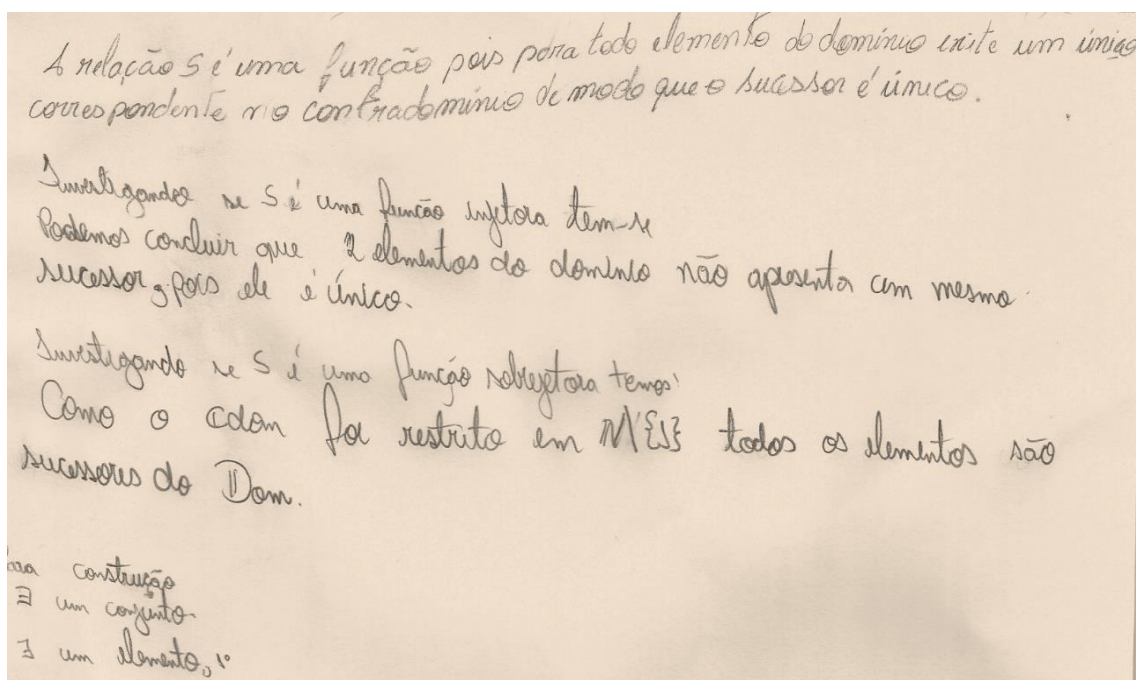 A relação S é uma função pois para todo elemento do domínio existe um único
correspondente no contradomínio de modo que o sucessor é único.
Investigando se S é uma função injetora tem-se
Podemos concluir que 2 elementos do domínio não apresenta um mesmo
sucessor, pois ele é único.
Investigando se S é uma função sobrejetora temos:
Como o cdom foi restrito em N\{1} todos os elementos são
sucessores do Dom.
construção
∃ um conjunto.
∃ um elemento, 1º